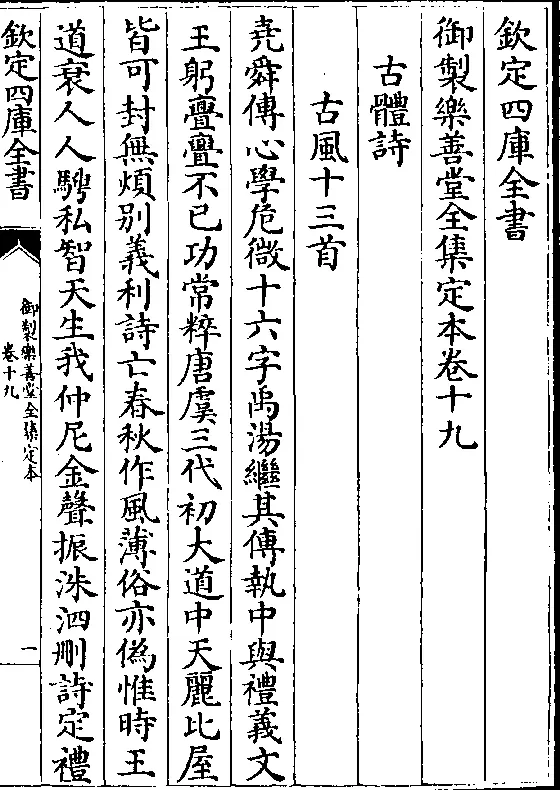 欽定四庫全書
御製樂善堂全集定本卷十九
古體詩
古風十三首
堯舜傳心學危微十六字禹湯繼其傳執中與禮義文
王躬亹亹不已功常粹唐虞三代初大道中天麗比屋
皆可封無煩别義利詩亡春秋作風薄俗亦偽惟時王
道衰人人騁私智天生我仲尼金聲振洙泗刪詩定禮
欽定四庫全書
御製樂善堂全集定本
卷十九
一